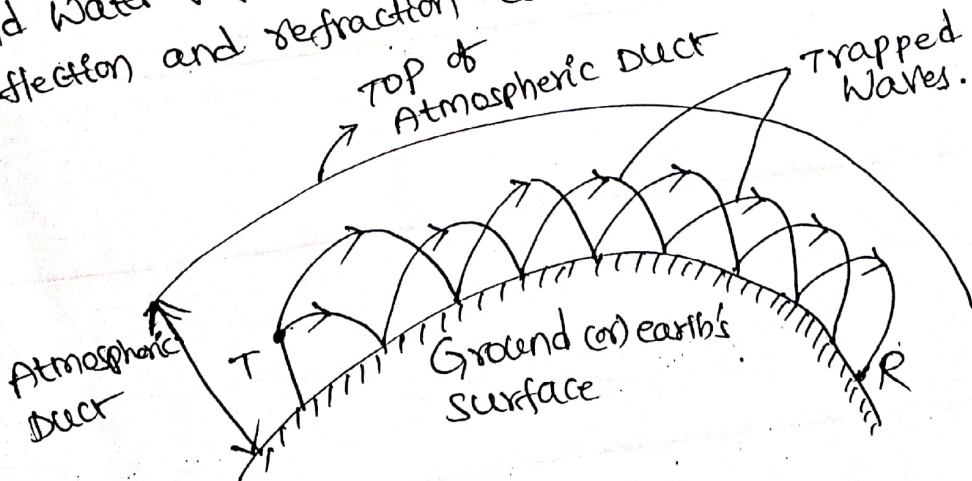 d Water
flection and refraction
TOP of
Atmospheric Duct
Trapped
Waves.
Atmospheric
Duct
T
Ground (or) earth's
surface
R